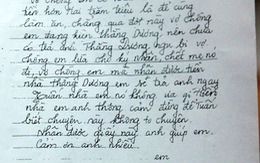 tên hòn Hai trăm triệu là để cùng
làm ăn, chẳng qua đợt này vợ chồng
em đang kiện thằng Dương, nên chưa
có trả đủ Thằng Dương hẹn bi vợ
chồng em lừa cho ký nhận, chết mẹ nó
đi, Vợ chồng em mà nhận được tiền
nhà thằng Dương em sẽ trả anh ngay
Xuân nhà em nó không ưa gì
nhà em anh thông cảm đừng để Xuân
biết chuyện này không to chuyện.
Nhận được giấy này anh giúp em.
Cảm ơn anh nhiều.
em